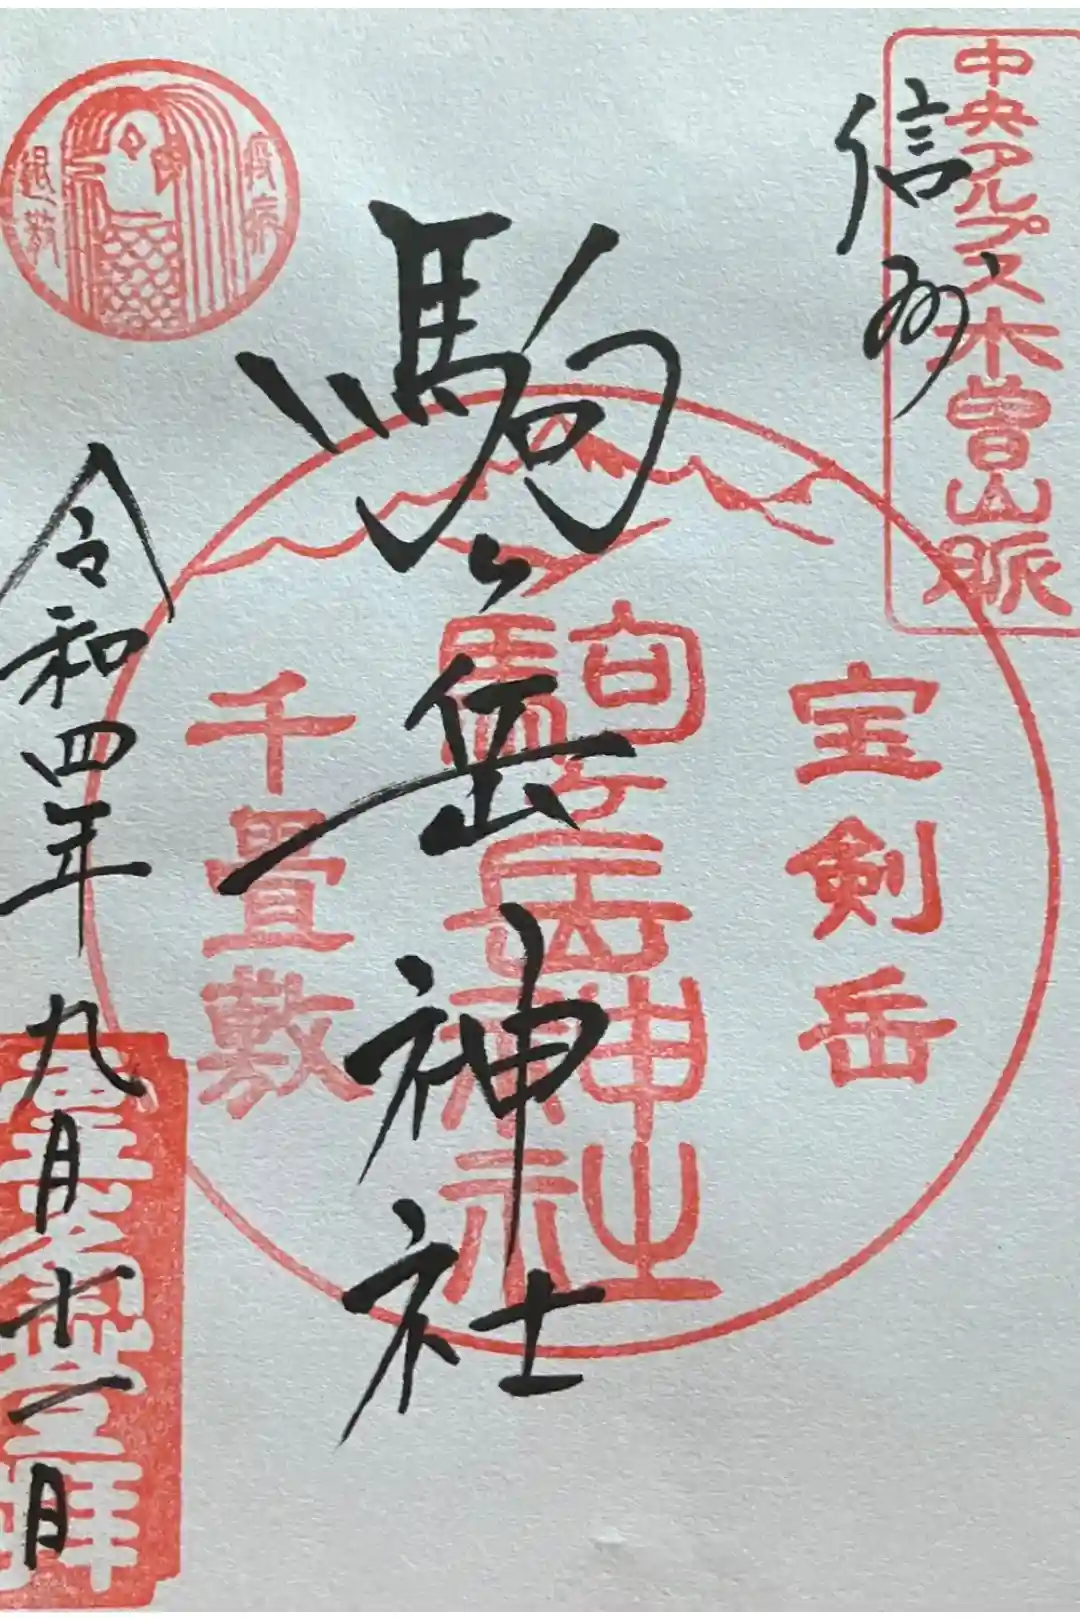 中央アルプス木曽山脈
信州
宝剣岳
駒ヶ岳神社
駒ヶ岳神社
千畳敷
疫病
退散
令和四年九月十一日